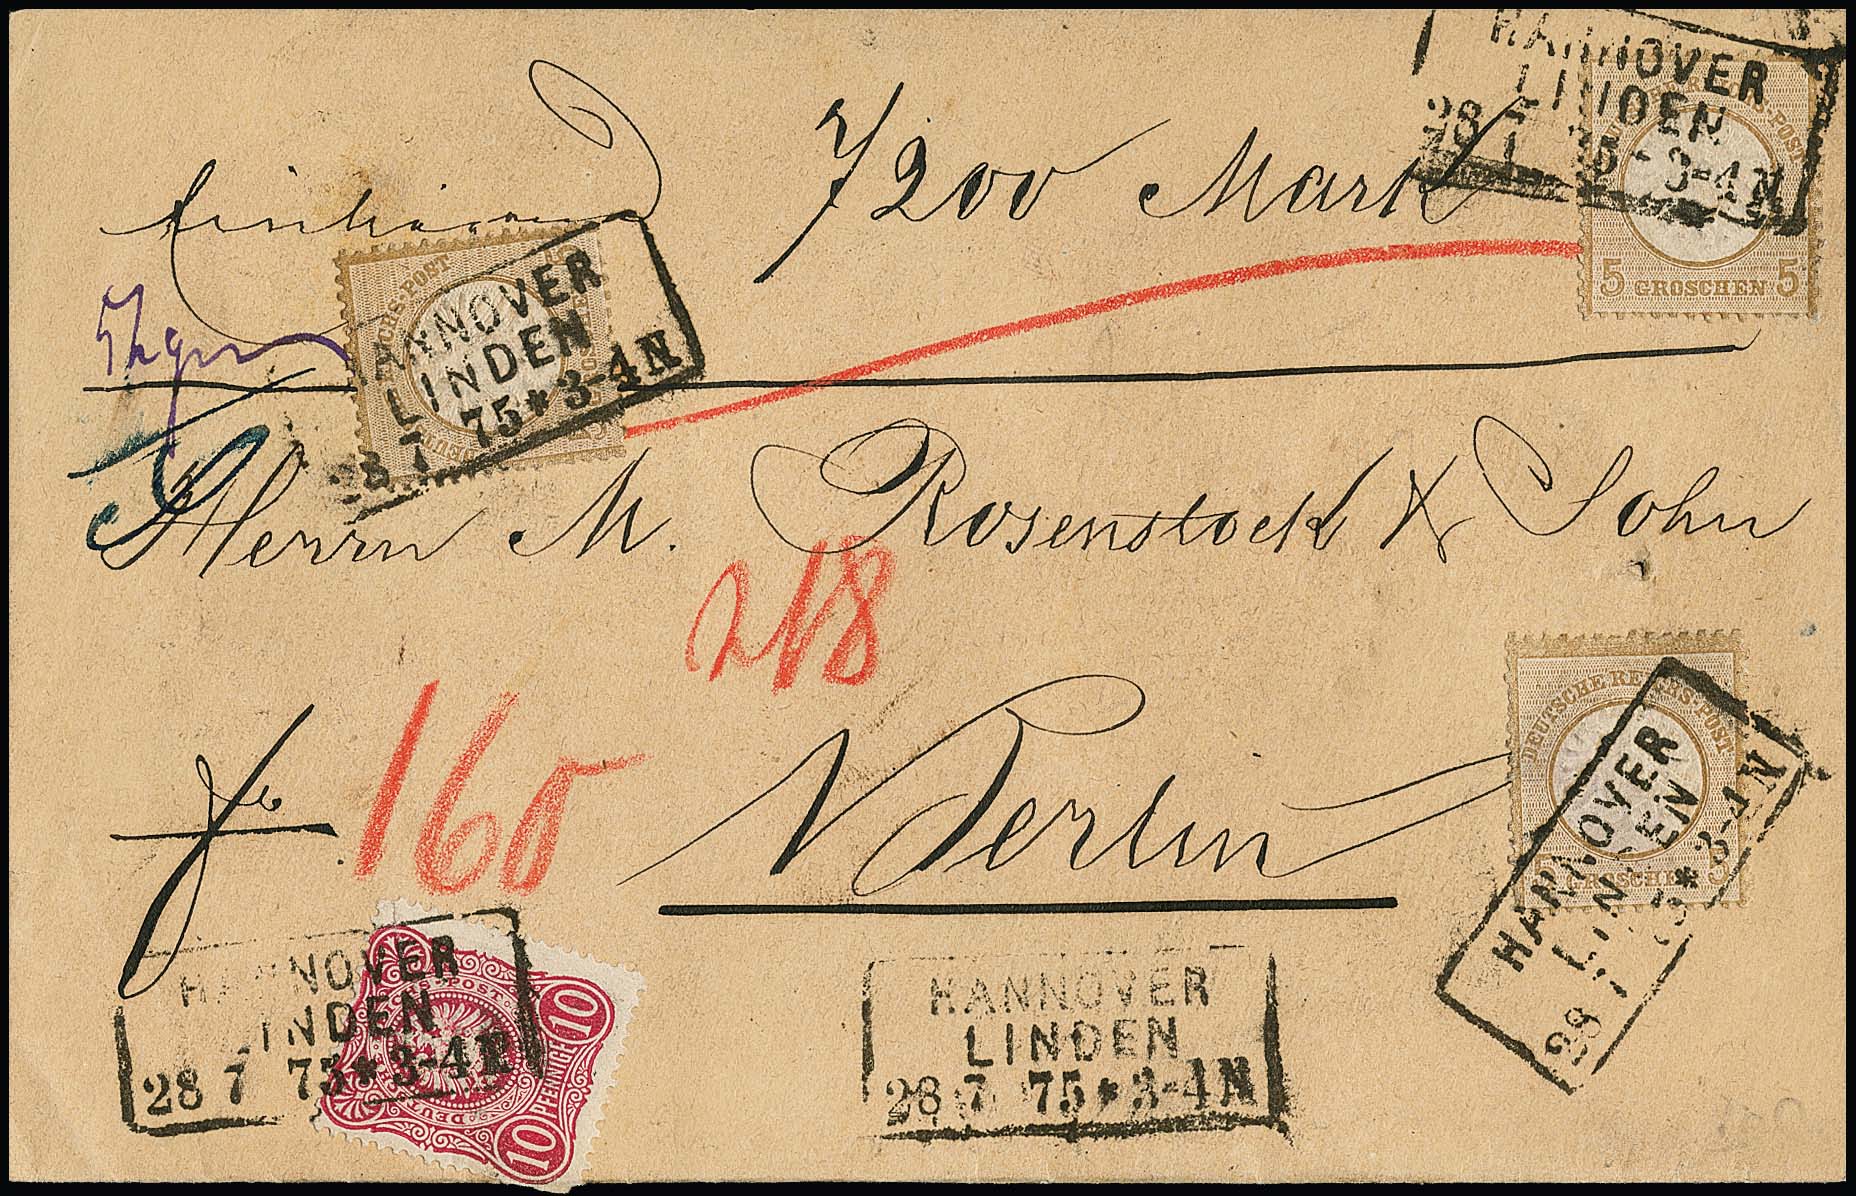 HANNOVER
LINDEN
28 7 75 * 3-4 N
5 GROSCHEN 5
7200 Mark
HANNOVER
LINDEN
28 7 75 * 3-4 N
Herrn M. Rosenstock & Sohn
218
160
Berlin
DEUTSCHE REICHS-POST
GROSCHEN 5
HANNOVER
LINDEN
28 7 75 * 3-4 N
HANNOVER
LINDEN
28 7 75 * 3-4 N
10 PFENNIGE 10
HANNOVER
LINDEN
28 7 75 * 3-4 N